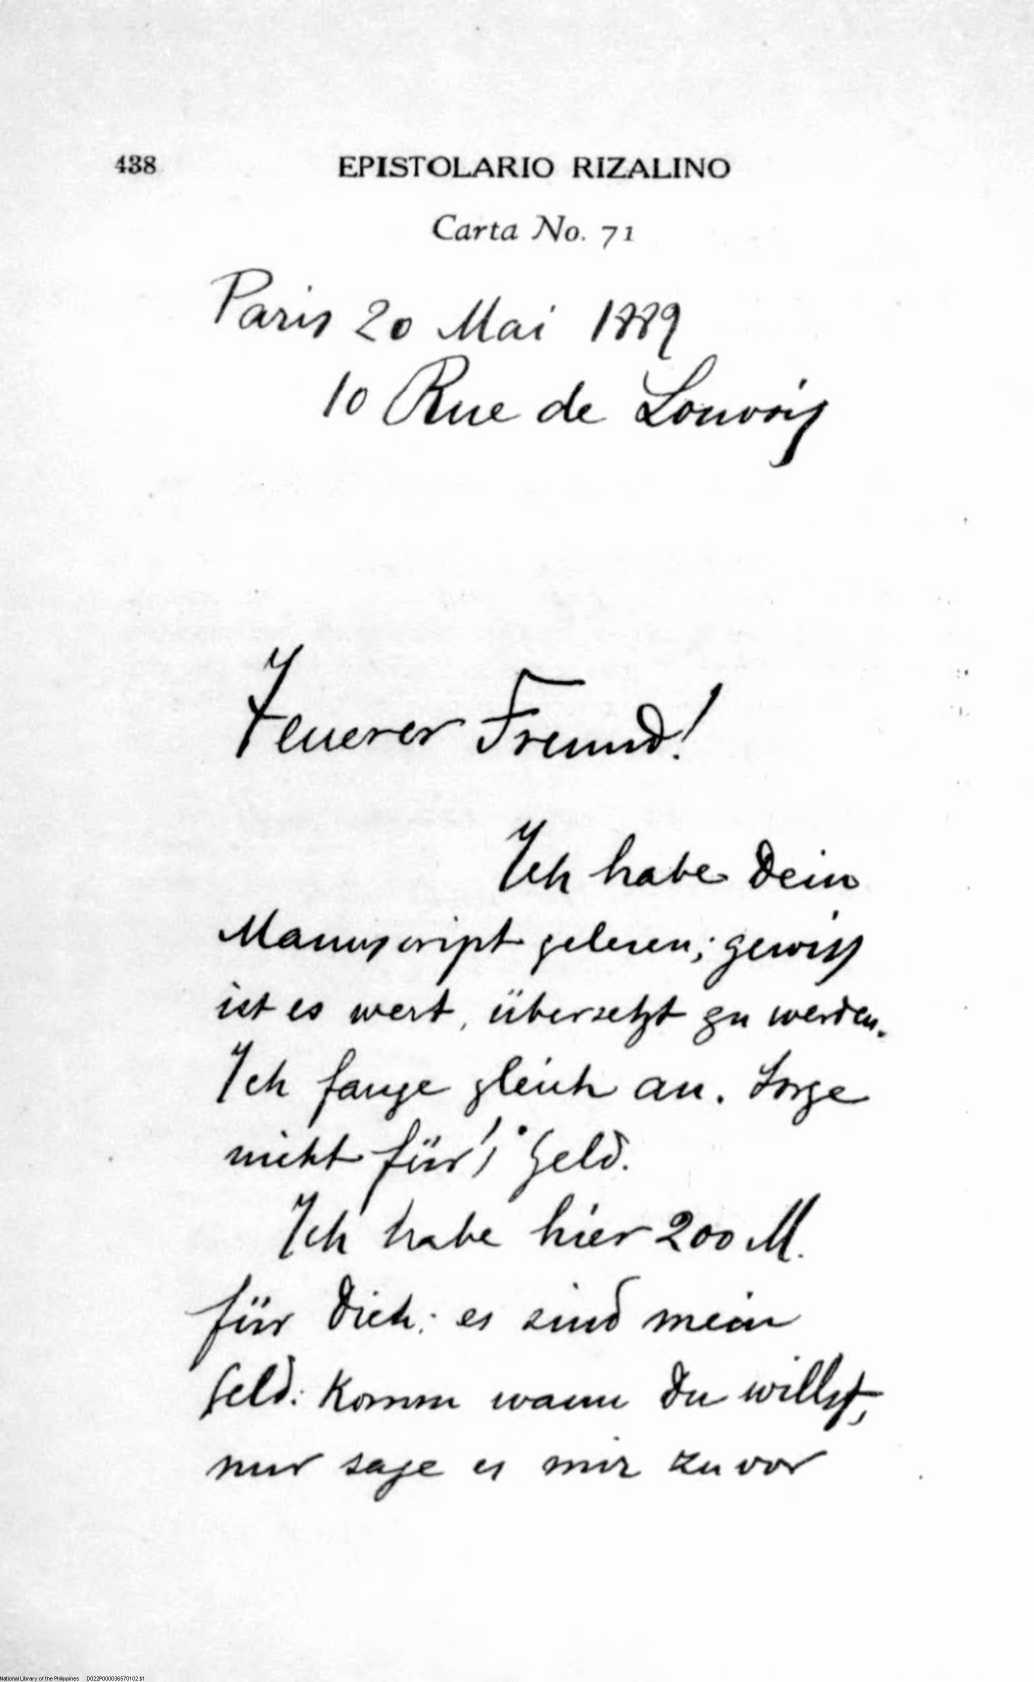 438 EPISTOLARIO RIZALINO
Carta No. 71
Paris 20 Mai 1889
10 Rue de Louvois
Teuerer Freund!
Ich habe Dein
Manuscript gelesen; gewiss
ist es wert, übersetzt zu werden.
Ich fange gleich an. Sorge
nicht für's Geld.
Ich habe hier 200 M.
für Dich: es sind mein
Geld: Komm wann Du willst,
nur sage es mir zuvor
National Library of the Philippines